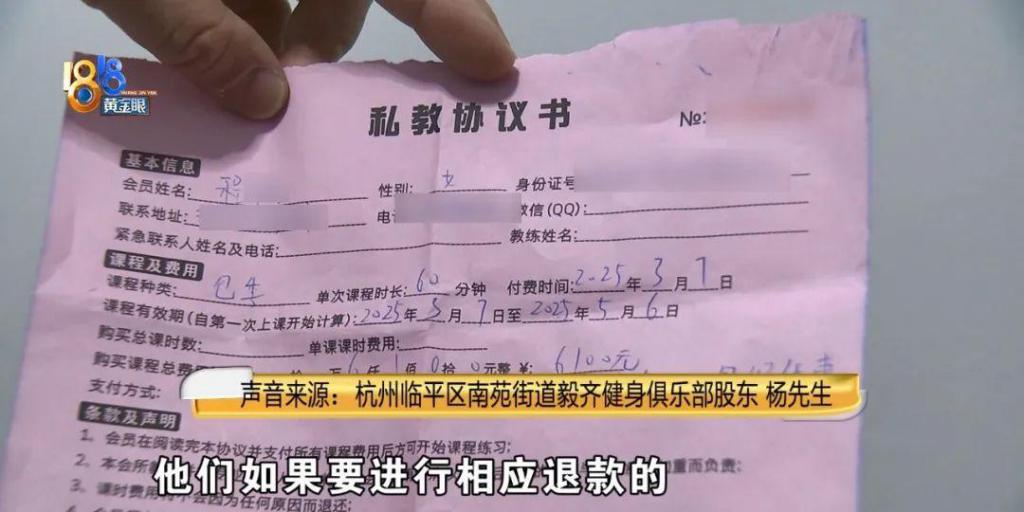 1818
黄金眼
私教协议书 №:
基本信息
会员姓名: 性别: 女 身份证号
联系地址: 电 微信(QQ):
紧急联系人姓名及电话: 教练姓名:
课程及费用
课程种类: 包季 单次课程时长: 60 分钟 付费时间: 2025年3月7日
课程有效期(自第一次上课开始计算): 2025年3月7日至2025年5月6日
购买总课时数: 单课课时费用:
购买课程总费 万6仟1佰0拾0元整 ¥: 6100元
支付方式:
声音来源: 杭州临平区南苑街道毅齐健身俱乐部股东 杨先生
条款及声明
1、会员在阅读完本协议并支付所有课程费用后方可开始课程练习;
2、本会所教 重而负责;
3、课时费用 不会因为任何原因而退还;
他们如果要进行相应退款的